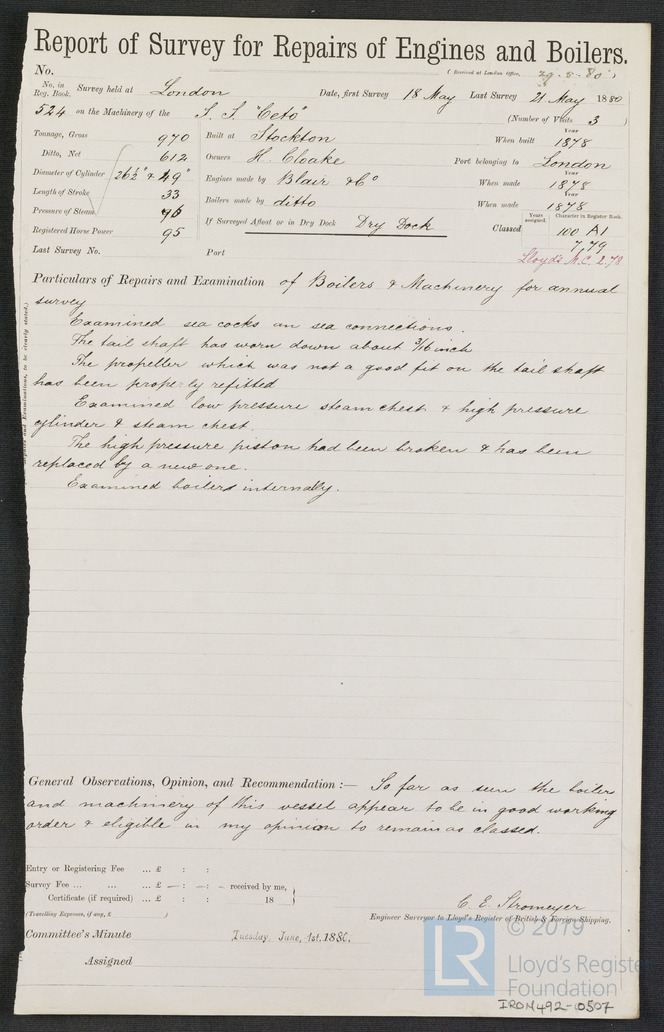 Report of Survey for Repairs of Engines and Boilers.
No. (Received at London Office, 29-5-80)
No. in Reg. Book. Survey held at London Date, first Survey 18 May Last Survey 21 May 1880
524 on the Machinery of the S. S. "Ceto" (Number of Visits 3)
Tonnage, Gross 970 Built at Stockton When built Year 1878
Ditto, Net 612 Owners H. Cloake Port belonging to London
Diameter of Cylinder 26½" & 49" Engines made by Blair & Co When made Year 1878
Length of Stroke 33 Boilers made by ditto When made Year 1878
Pressure of Steam If Surveyed Afloat or in Dry Dock Dry Dock Classed Years assigned. Character in Register Book. 100 A1
Registered Horse Power 95 7,79
Last Survey No. Port Lloyd's M.C. 2.78
Particulars of Repairs and Examination of Boilers & Machinery for annual
survey
Examined sea cocks an sea connections.
The tail shaft has worn down about 3/16 inch
The propeller which was not a good fit on the tail shaft
has been properly refitted
Examined low pressure steam chest & high pressure
cylinder & steam chest.
The high pressure piston had been broken & has been
replaced by a new one.
Examined boilers internally.
Repairs and Examinations, to be clearly stated.)
General Observations, Opinion, and Recommendation :— So far as seen the boiler
and machinery of this vessel appear to be in good working
order & eligible in my opinion to remain as classed.
Entry or Registering Fee ... £ : :
Survey Fee ... ... ... £ — : — : — received by me,
Certificate (if required) ... £ : : 18
(Travelling Expenses, if any, £ )
C. E. Stromeyer
Engineer Surveyor to Lloyd's Register of British & Foreign Shipping.
Committee's Minute Tuesday, June, 1st, 1880.
Assigned
© 2019
LR
Lloyd's Register
Foundation
IRON492-0507